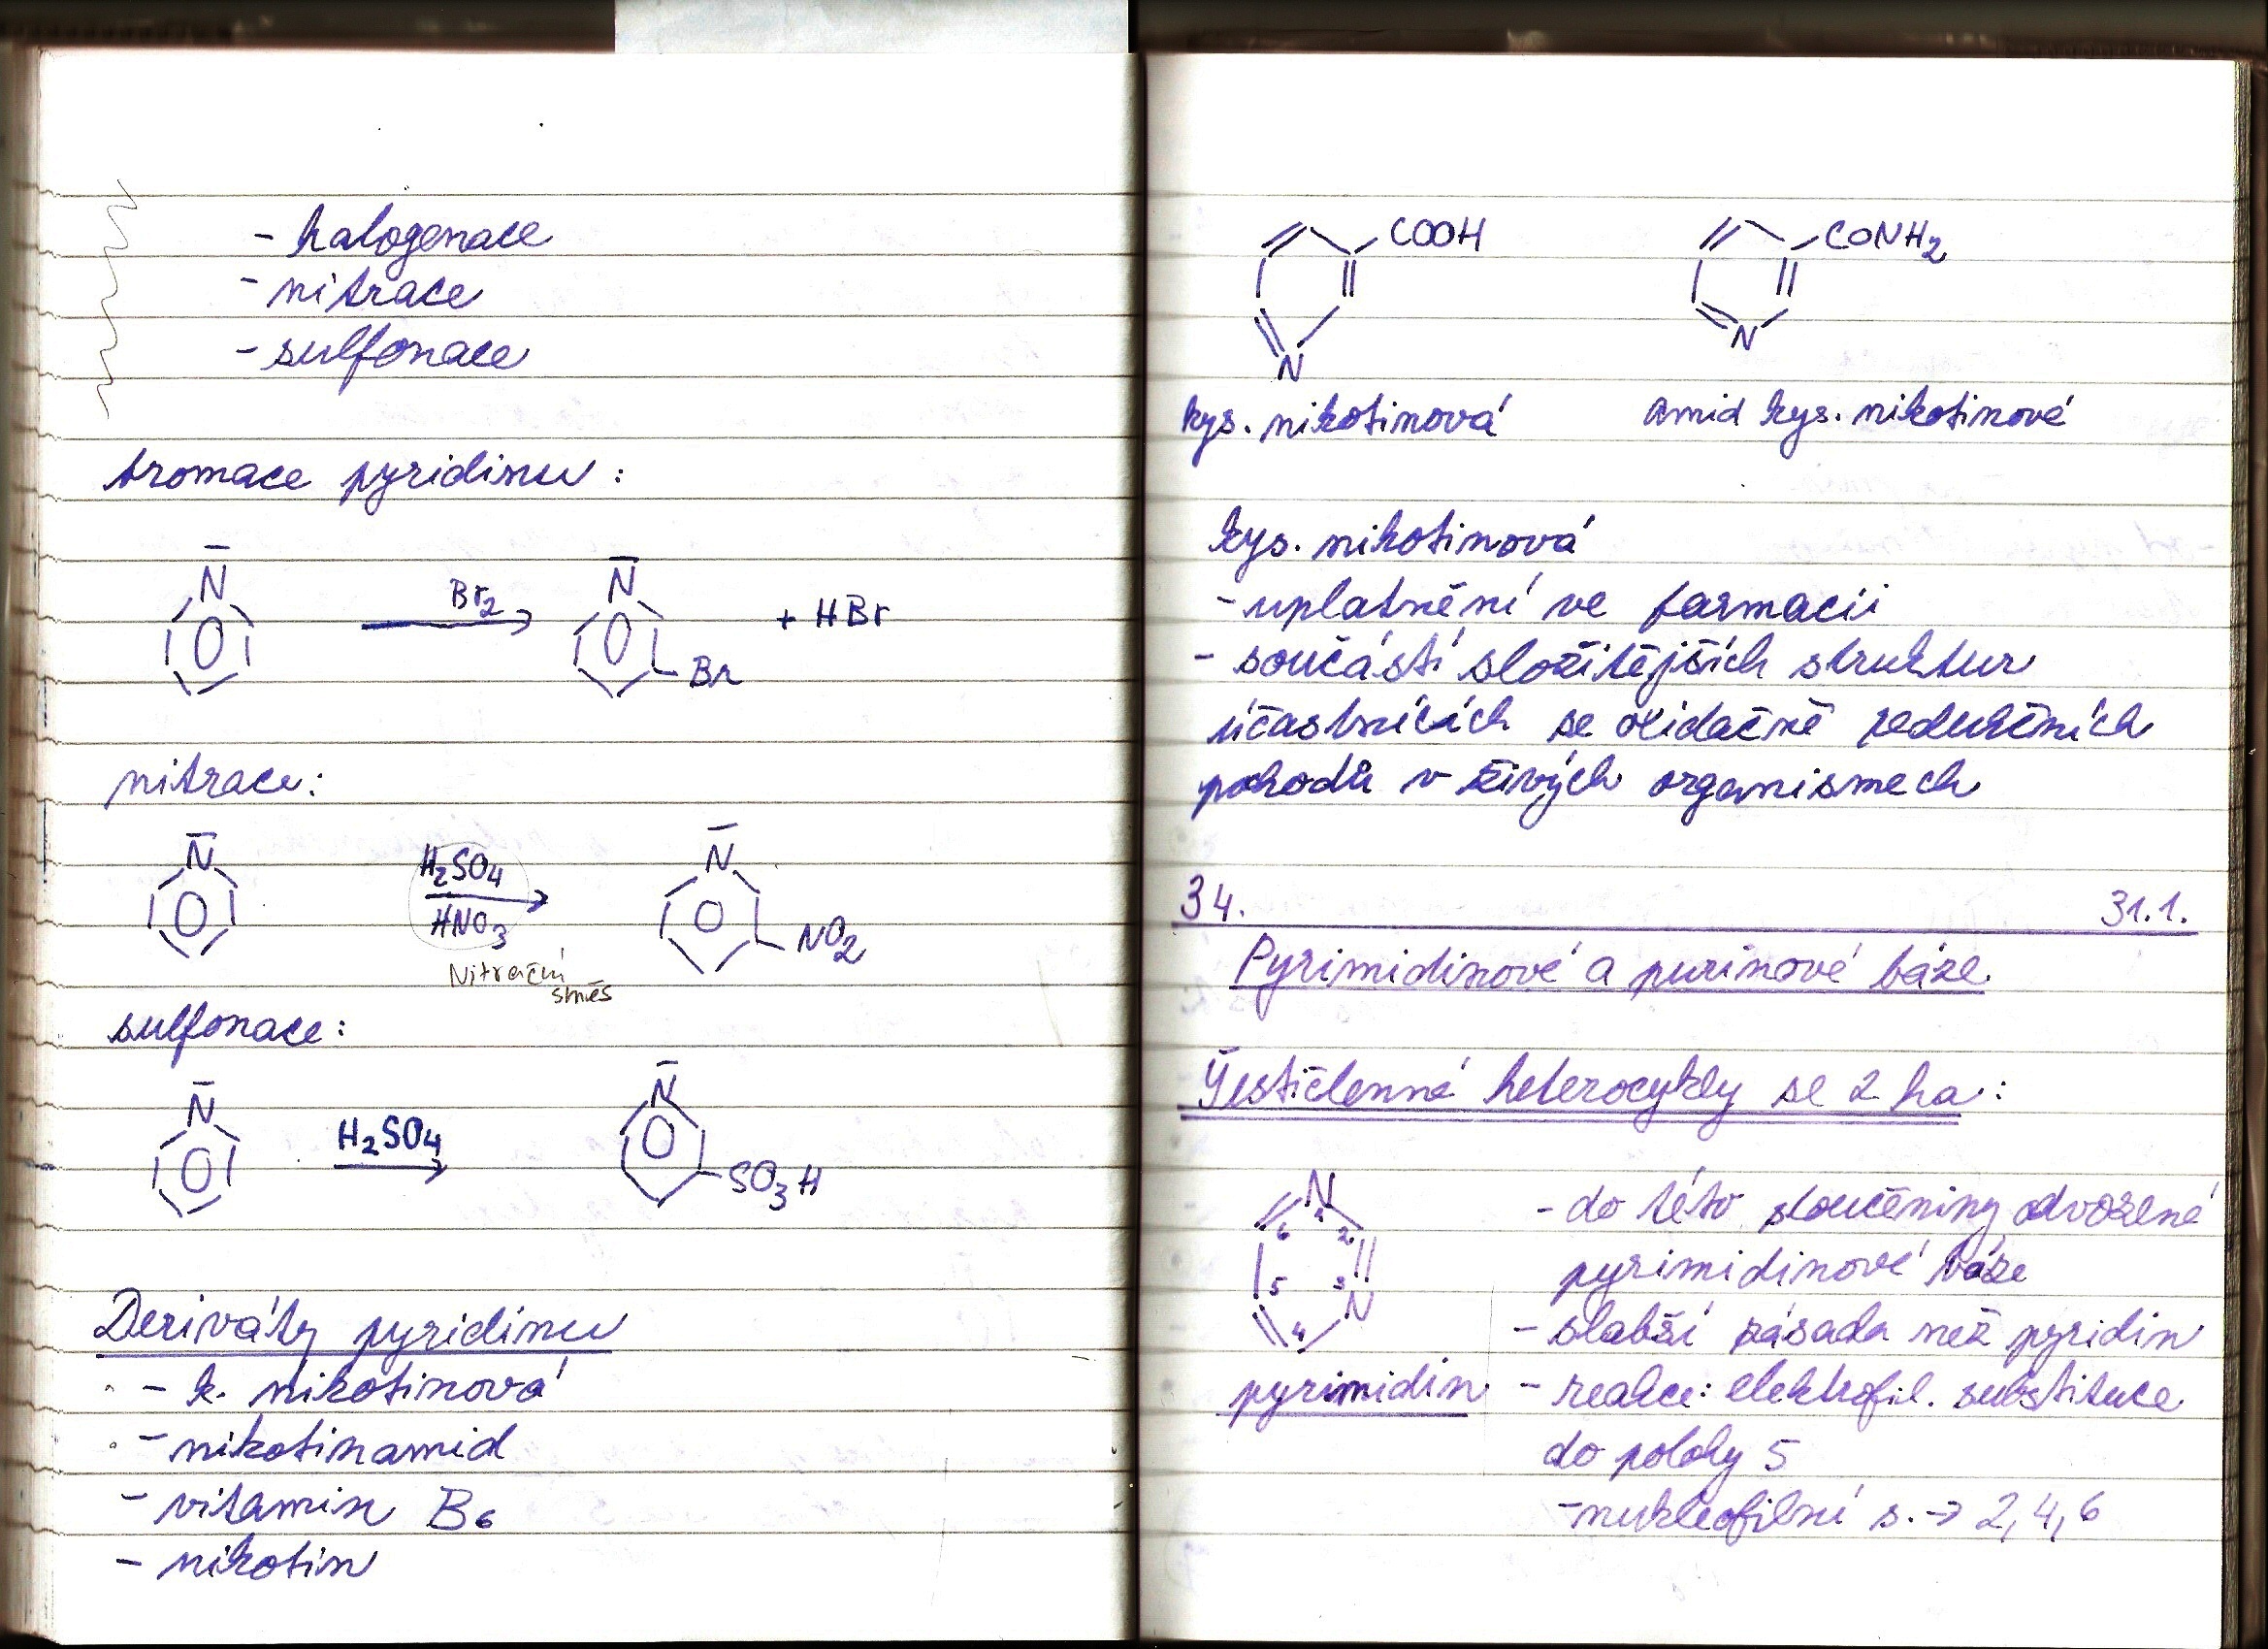 - halogenace
- nitrace
- sulfonace
bromace pyridinu:
N
N
Br2
+ HBr
Br
nitrace:
N
N
H2SO4
HNO3
NO2
Nitrační
směs
sulfonace:
N
N
H2SO4
SO3H
Deriváty pyridinu
- k. nikotinová
- nikotinamid
- vitamin B6
- nikotin
COOH
CONH2
N
N
kys. nikotinová
amid kys. nikotinové
kys. nikotinová
- uplatnění ve farmacii
- součástí složitějších struktur
účastnících se oxidačně redukčních
pohodů v živých organismech
34.
31.1.
Pyrimidinové a purinové báze
Šestičlenné heterocykly se 2 ha:
N
1
6
2
5
3
N
4
pyrimidin
- do této sloučeniny odvozené
pyrimidinové báze
- slabší zásada než pyridin
- reakce: elektrofil. substituce
do polohy 5
- nukleofilní s. → 2,4,6